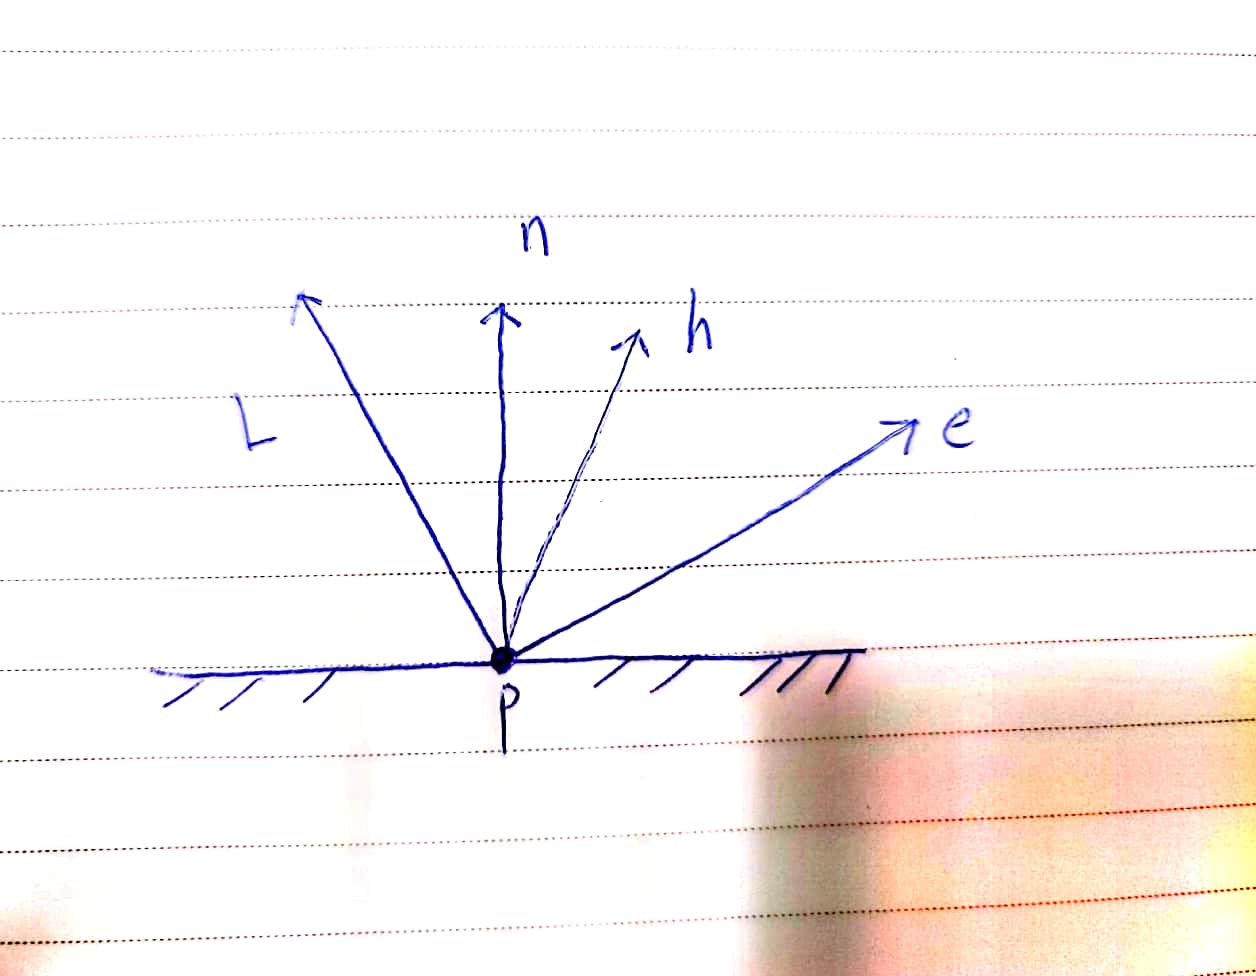 n
h
L
e
p